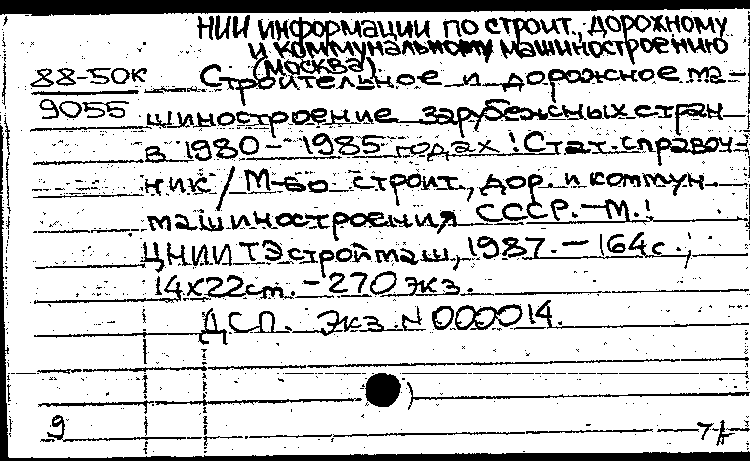 НИИ информации по строит., дорожному
и коммунальному машиностроению
(Москва).
88-50к
9055
Строительное и дорожное ма-
шиностроение зарубежных стран
в 1980-1985 годах ! Стат. справоч-
ник / М-во строит., дор. и коммун.
машиностроения СССР.-М.!
ЦНИИТЭстроймаш, 1987.-164с.;
14х22см.-270 экз.
ДСП. Экз. N 000014.
9